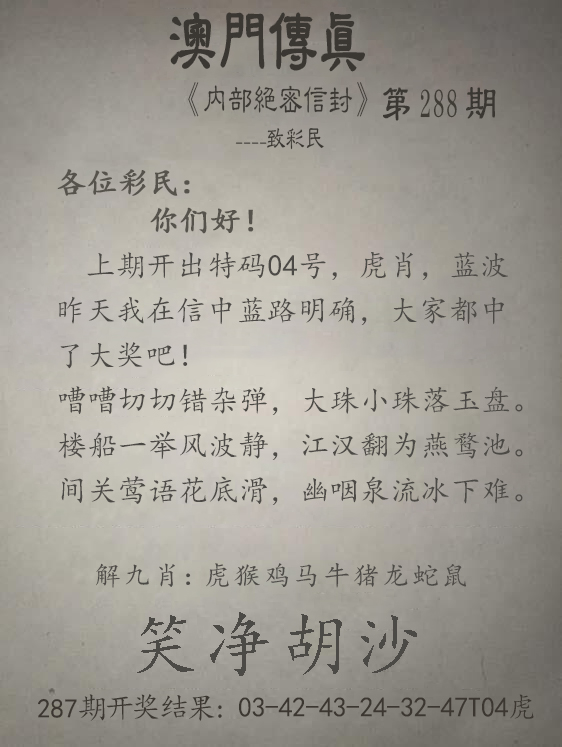 澳門傳眞
《内部絕密信封》第288期
----致彩民
各位彩民：
你们好！
上期开出特码04号，虎肖，蓝波
昨天我在信中蓝路明确，大家都中
了大奖吧！
嘈嘈切切错杂弹，大珠小珠落玉盘。
楼船一举风波静，江汉翻为燕鹜池。
间关莺语花底滑，幽咽泉流冰下难。
解九肖：虎猴鸡马牛猪龙蛇鼠
笑净胡沙
287期开奖结果：03-42-43-24-32-47T04虎